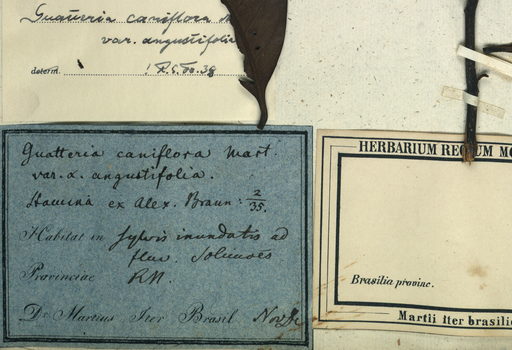 Guatteria caniflora
var. angustifolia
determ.
Guatteria caniflora Mart.
var. α. angustifolia.
ex Alex. Braun: 2/35.
Habitat in sylvis inundatis ad
fluv. Solimoës
Provinciae RN.
Dr Martius Iter Brasil Novbr
HERBARIUM REGIUM MO
Brasilia provinc.
Martii Iter brasilie